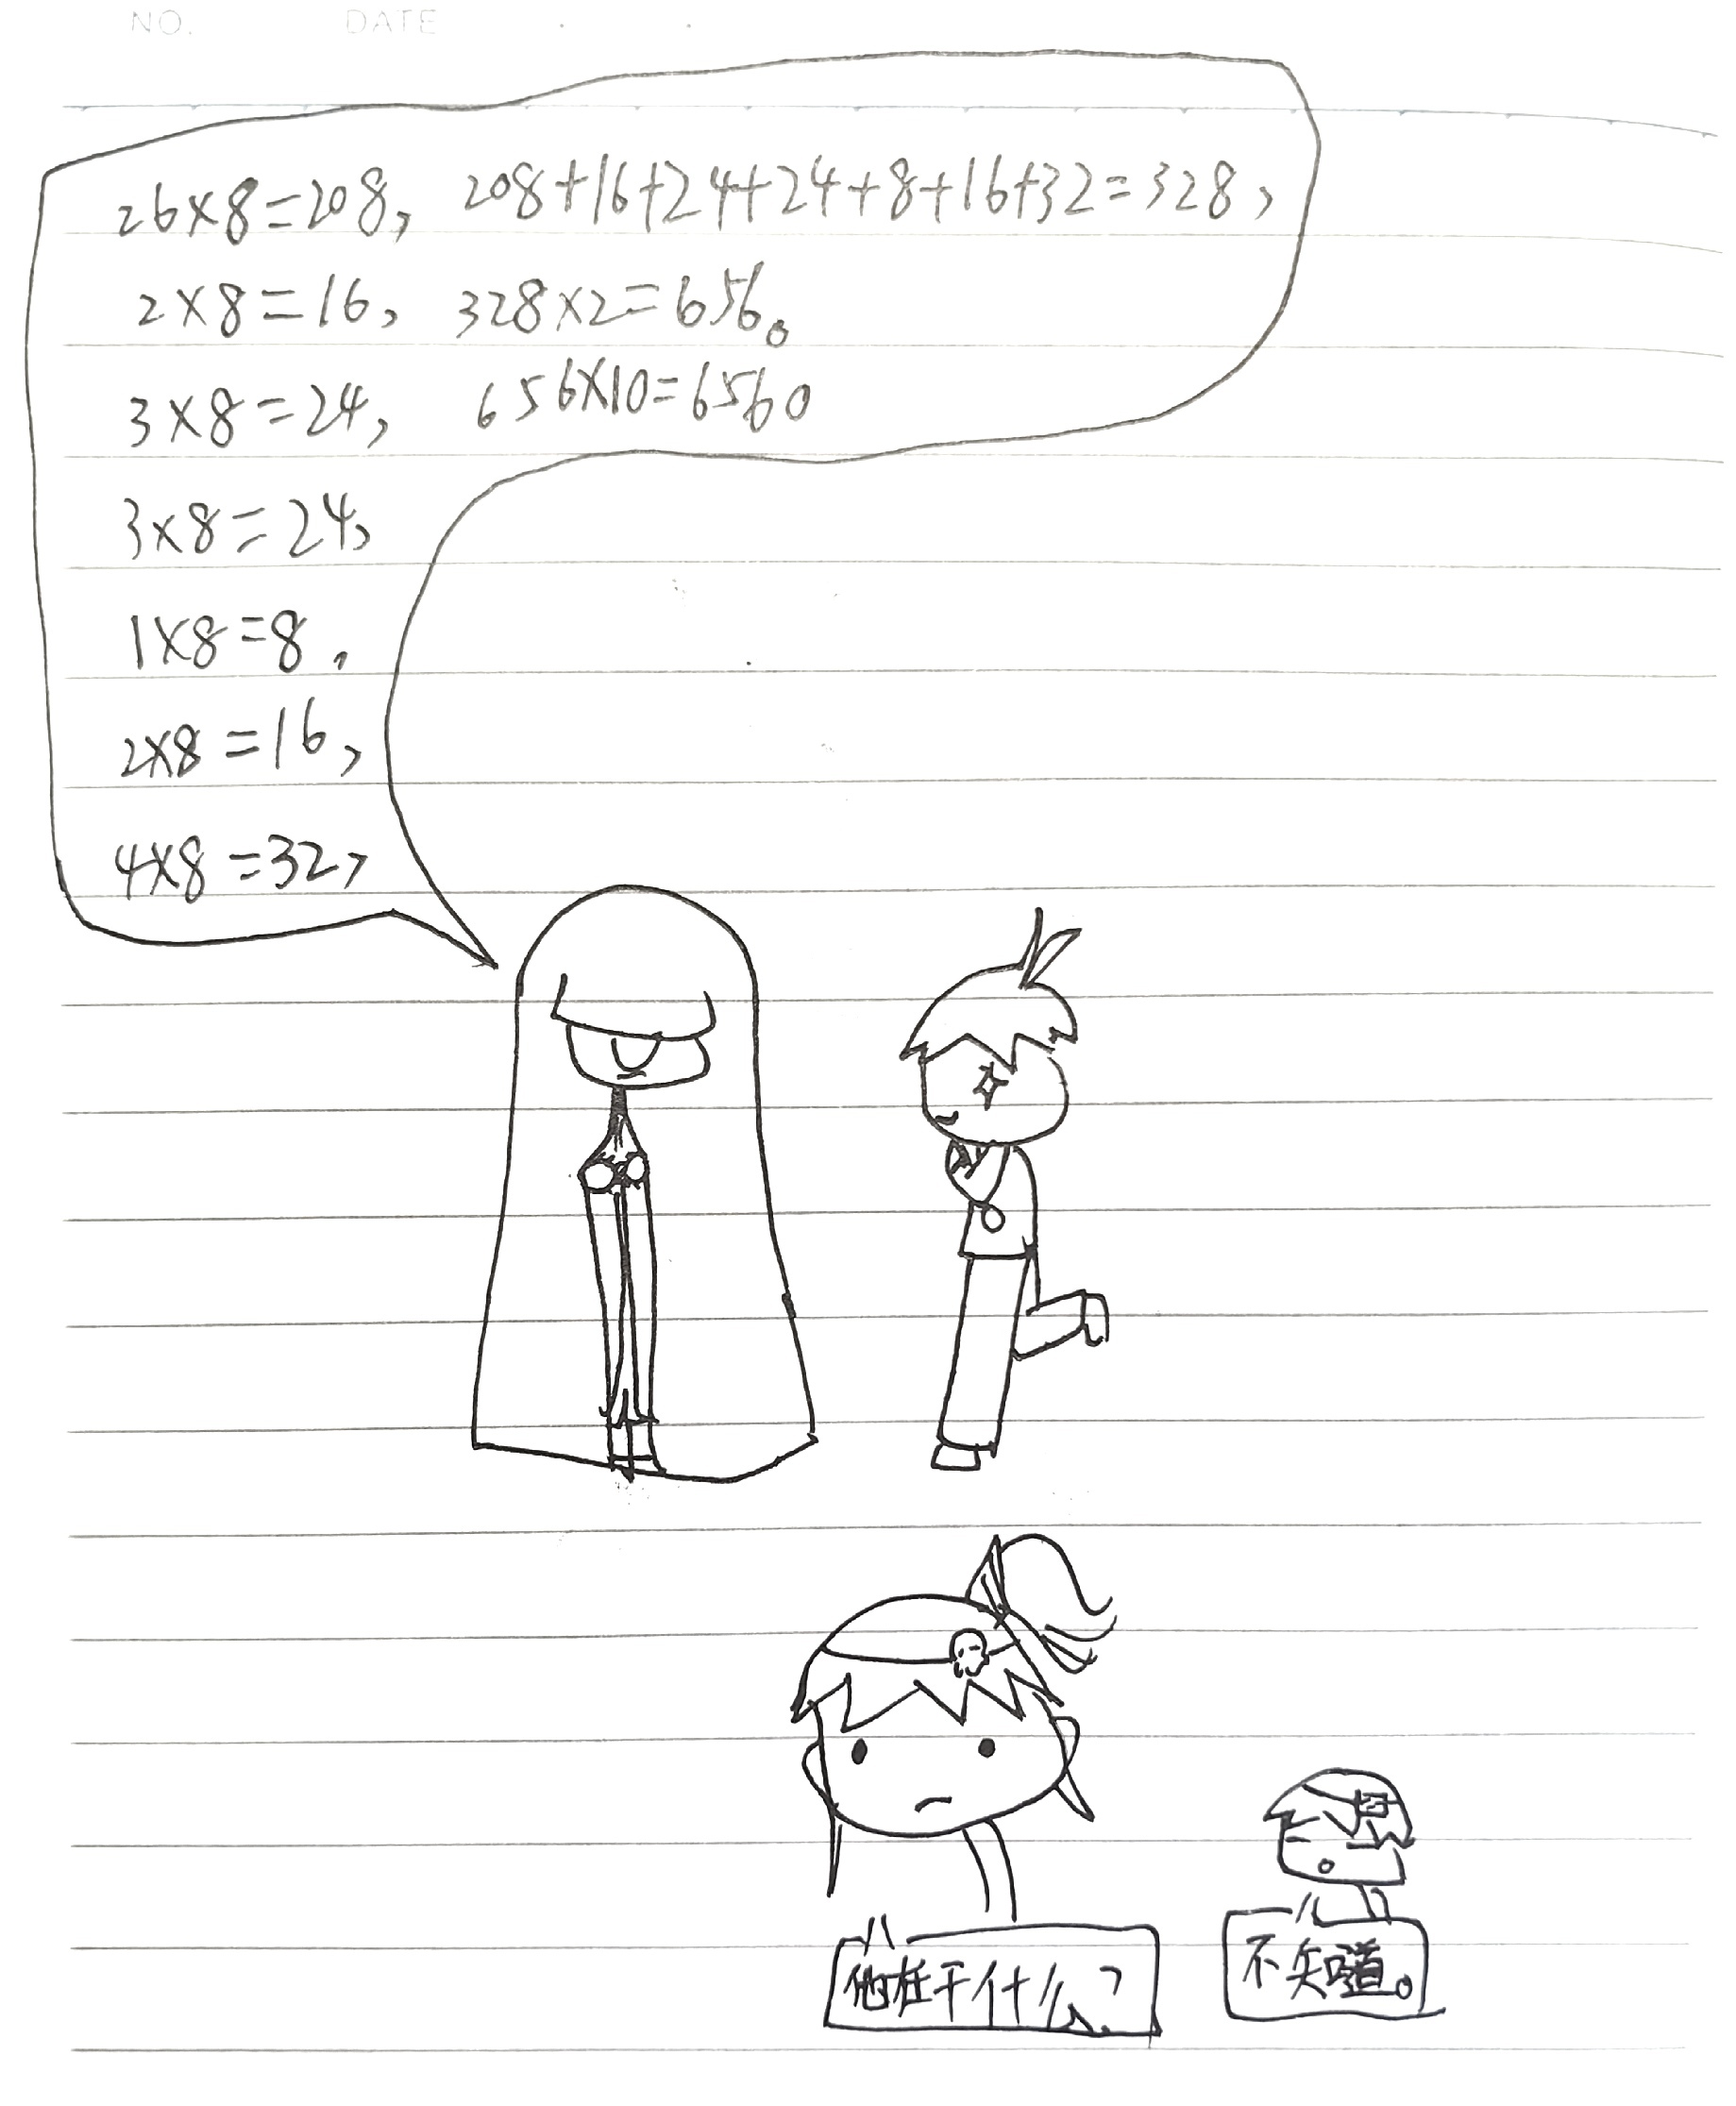 NO. DATE
26×8=208, 208+16+24+24+8+16+32=328,
2×8=16, 328×2=656。
3×8=24, 656×10=6560
3×8=24,
1×8=8,
2×8=16,
4×8=32,
他在干什么?
不知道。